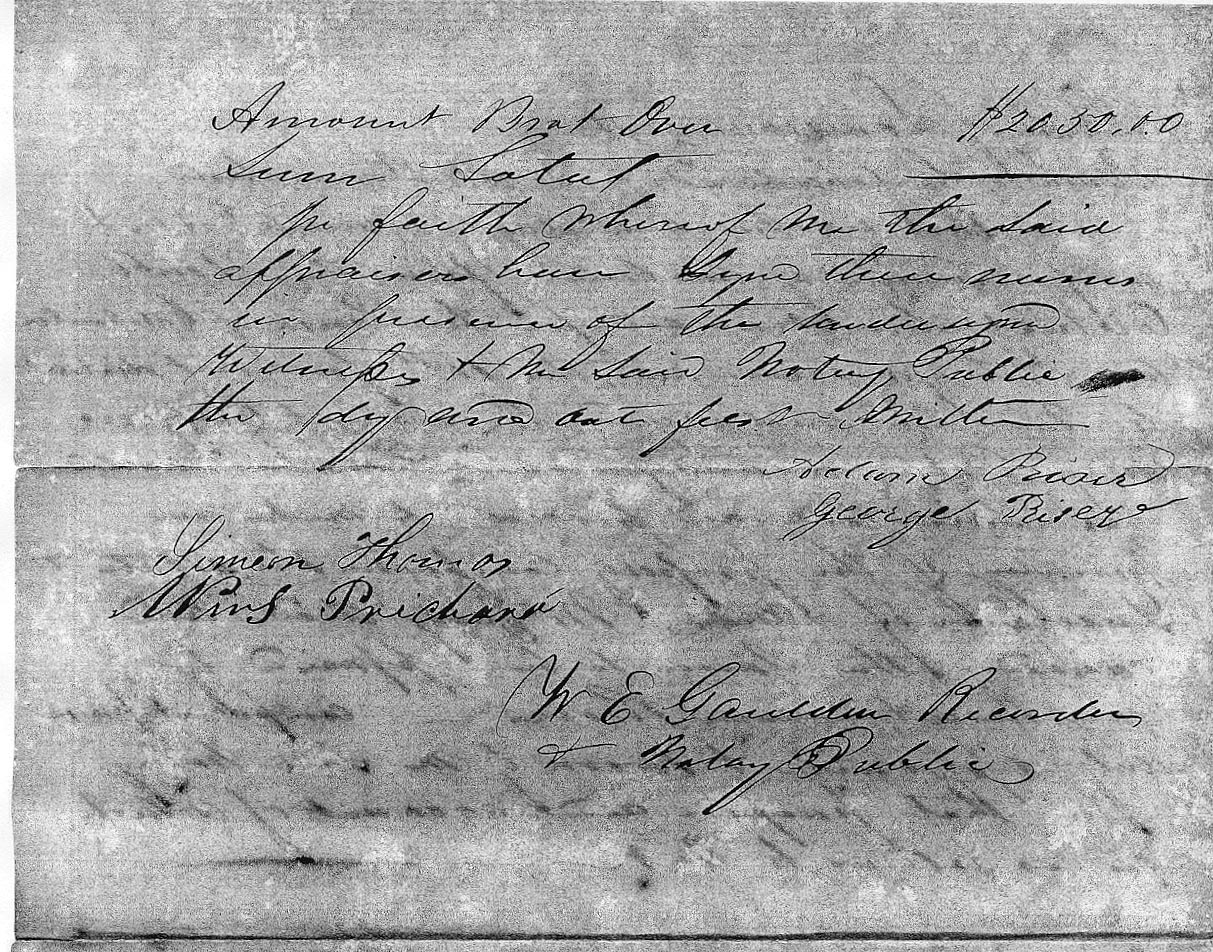 Amount Brot Over $2030.00
Sum Total
In faith whereof We the said
appraisers have Signd these names
in presence of the undersignd
Witnesses + Me said Notary Public
the day and date first Written
Adam Riser
George Riser
Simeon Thomas
Prichard
W E Gaulden Recorder
& Notary Public